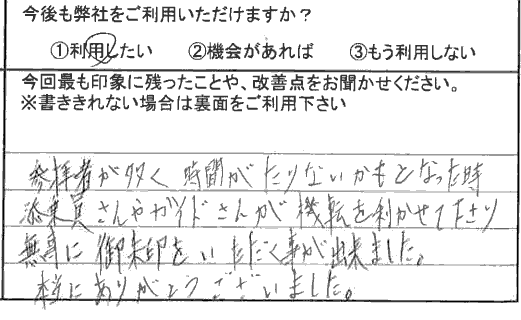 今後も弊社をご利用いただけますか？
①利用したい ②機会があれば ③もう利用しない
今回最も印象に残ったことや、改善点をお聞かせください。
※書ききれない場合は裏面をご利用下さい
参拝者が多く 時間がたりないかもとなった時
添乗員さんやガイドさんが機転を利かせて下さり
無事に御朱印をいただく事が出来ました。
本当にありがとうございました。